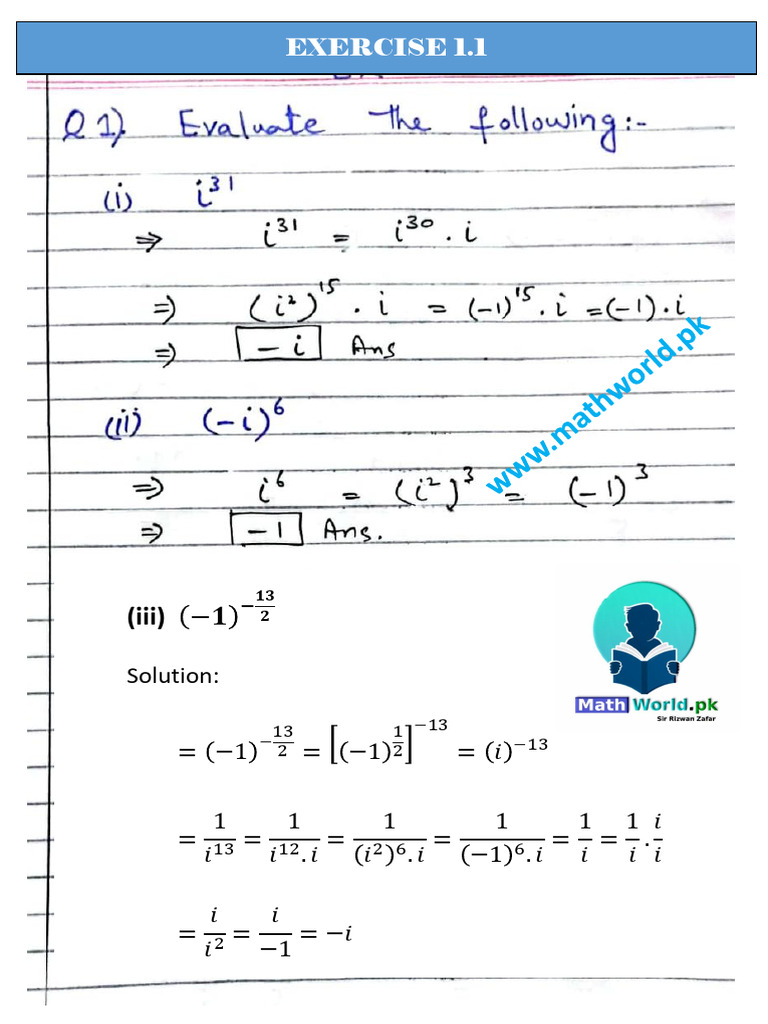 EXERCISE 1.1
Q1). Evaluate the following:-
(i) i³¹
⇒ i³¹ = i³⁰ . i
⇒ (i²)¹⁵ . i = (-1)¹⁵ . i = (-1) . i
⇒ -i Ans
(ii) (-i)⁶
⇒ i⁶ = (i²)³ = (-1)³
⇒ -1 Ans.
www.mathworld.pk
(iii) (−1)^(−13/2)
Math World.pk
Sir Rizwan Zafar
Solution:
= (−1)^(−13/2) = [(−1)^(1/2)]^(−13) = (i)^(−13)
= 1/i¹³ = 1/(i¹².i) = 1/((i²)⁶.i) = 1/((−1)⁶.i) = 1/i = 1/i . i/i
= i/i² = i/−1 = −i